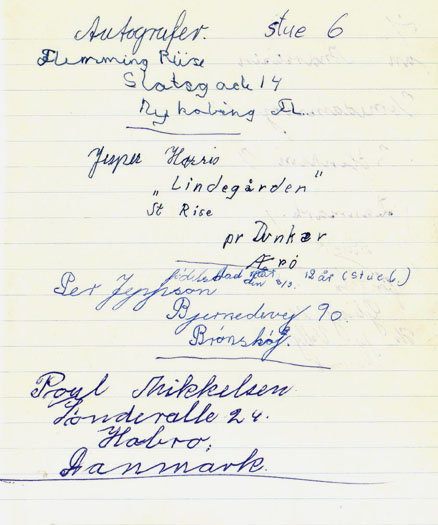 Autografer. stue 6
Flemming Riise
Slotsgade 14
Nykøbing Fl.
Jesper Harris
"Lindegården"
St Rise
pr Dunkær
Ærø
fødselsdag den 2/2. 12 år (stue 6.)
Per Jeppson
Bjernedevej 90.
Brønshøj.
Poul Mikkelsen.
Sønderalle 24.
Hobro,
Danmark.